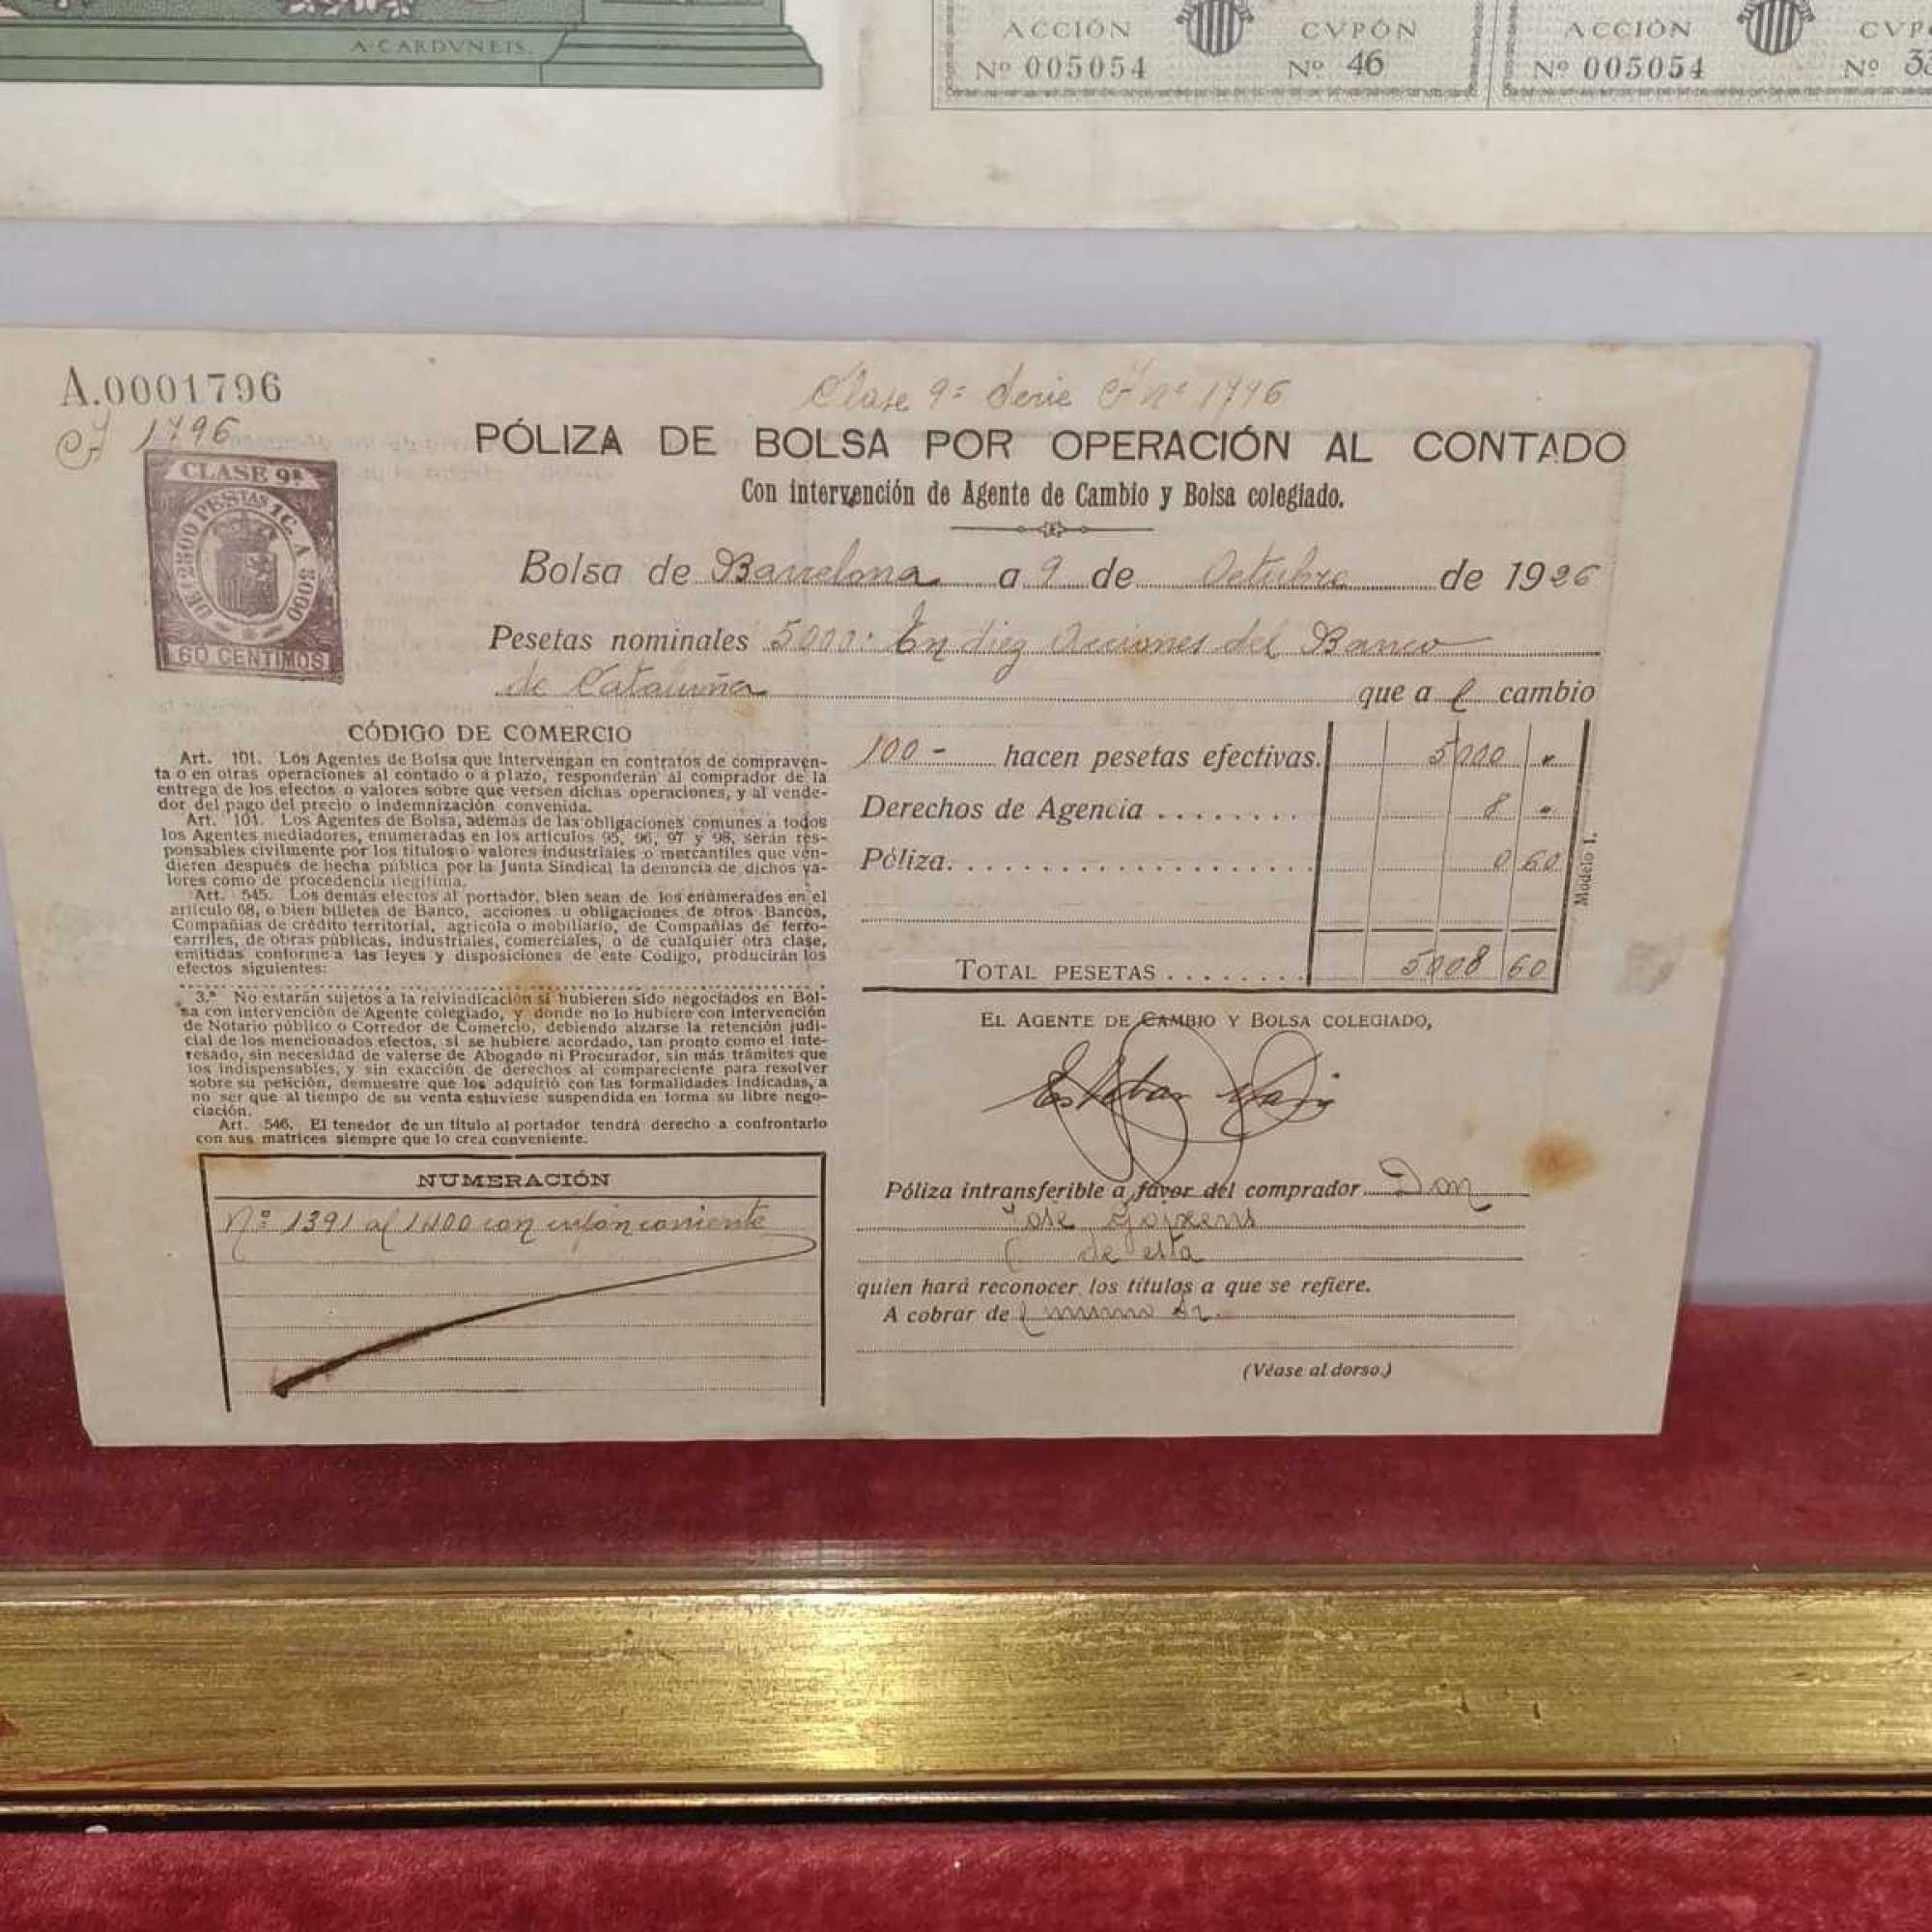 A. CARDVNETS.
ACCIÓN CVPÓN ACCIÓN
Nº 005054 Nº 46 Nº 005054 Nº
A.0001796
Clase 9ª Serie A nº 1796
A 1796
CLASE 9ª
DE 2500 PESETAS 1 C. A 5000
60 CENTIMOS
PÓLIZA DE BOLSA POR OPERACIÓN AL CONTADO
Con intervención de Agente de Cambio y Bolsa colegiado.
Bolsa de Barcelona a 9 de Octubre de 1926
Pesetas nominales 5000: En diez Acciones del Banco
de Cataluña que a l cambio
100 - hacen pesetas efectivas. 5000 "
Derechos de Agencia ........ 8 "
Póliza. .................... 0 60
TOTAL PESETAS ........ 5008 60
Modelo I.
CÓDIGO DE COMERCIO
Art. 101. Los Agentes de Bolsa que intervengan en contratos de compraven-
ta o en otras operaciones al contado o á plazo, responderán al comprador de la
entrega de los efectos o valores sobre que versen dichas operaciones, y al vende-
dor del pago del precio o indemnización convenida.
Art. 101. Los Agentes de Bolsa, además de las obligaciones comunes a todos
los Agentes mediadores, enumeradas en los artículos 95, 96, 97 y 98, serán res-
ponsables civilmente por los títulos o valores industriales o mercantiles que ven-
dieren después de hecha pública por la Junta Sindical la denuncia de dichos va-
lores como de procedencia ilegítima.
Art. 545. Los demás efectos al portador, bien sean de los enumerados en el
artículo 68, o bien billetes de Banco, acciones u obligaciones de otros Bancos,
Compañías de crédito territorial, agrícola o mobiliario, de Compañías de ferro-
carriles, de obras públicas, industriales, comerciales, o de cualquier otra clase,
emitidas conforme a las leyes y disposiciones de este Código, producirán los
efectos siguientes:
3.ª No estarán sujetos a la reivindicación si hubieren sido negociados en Bol-
sa con intervención de Agente colegiado, y donde no lo hubiere con intervención
de Notario público o Corredor de Comercio, debiendo alzarse la retención judi-
cial de los mencionados efectos, si se hubiere acordado, tan pronto como el inte-
resado, sin necesidad de valerse de Abogado ni Procurador, sin más trámites que
los indispensables, y sin exacción de derechos al compareciente para resolver
sobre su petición, demuestre que los adquirió con las formalidades indicadas, a
no ser que al tiempo de su venta estuviese suspendida en forma su libre nego-
ciación.
Art. 546. El tenedor de un título al portador tendrá derecho a confrontarlo
con sus matrices siempre que lo crea conveniente.
NUMERACIÓN
Nº 1391 al 1400 con cupón corriente
EL AGENTE DE CAMBIO Y BOLSA COLEGIADO,
Esteban
Póliza intransferible á favor del comprador Don
José Goixens
de esta
quien hará reconocer los títulos a que se refiere.
A cobrar de l mismo Sr.
(Véase al dorso.)